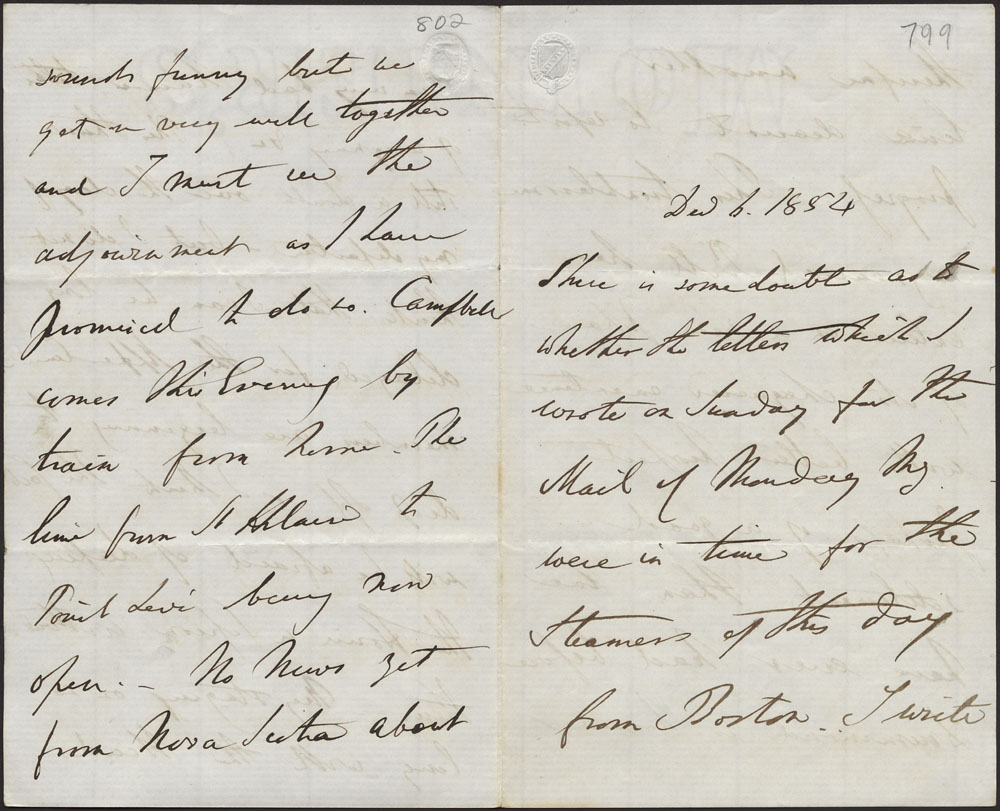 802
sounds funny but we
get on very well together
and I must see the
adjournment as I have
promised to do so. Campbell
comes this Evening by
train from home. The
line from St Hilaire to
Point Levi being now
open. – No News yet
from Nova Scotia about
799
Dec 6. 1854
There is some doubt as to
whether the letters which I
wrote on Sunday for the
Mail of Monday Mg.
were in time for the
Steamers of this day
from Boston. I write